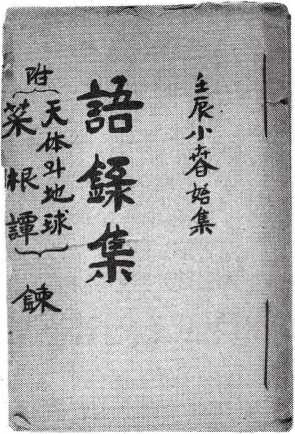 壬辰小春始集
語錄集
附
天体와地球
菜根譚